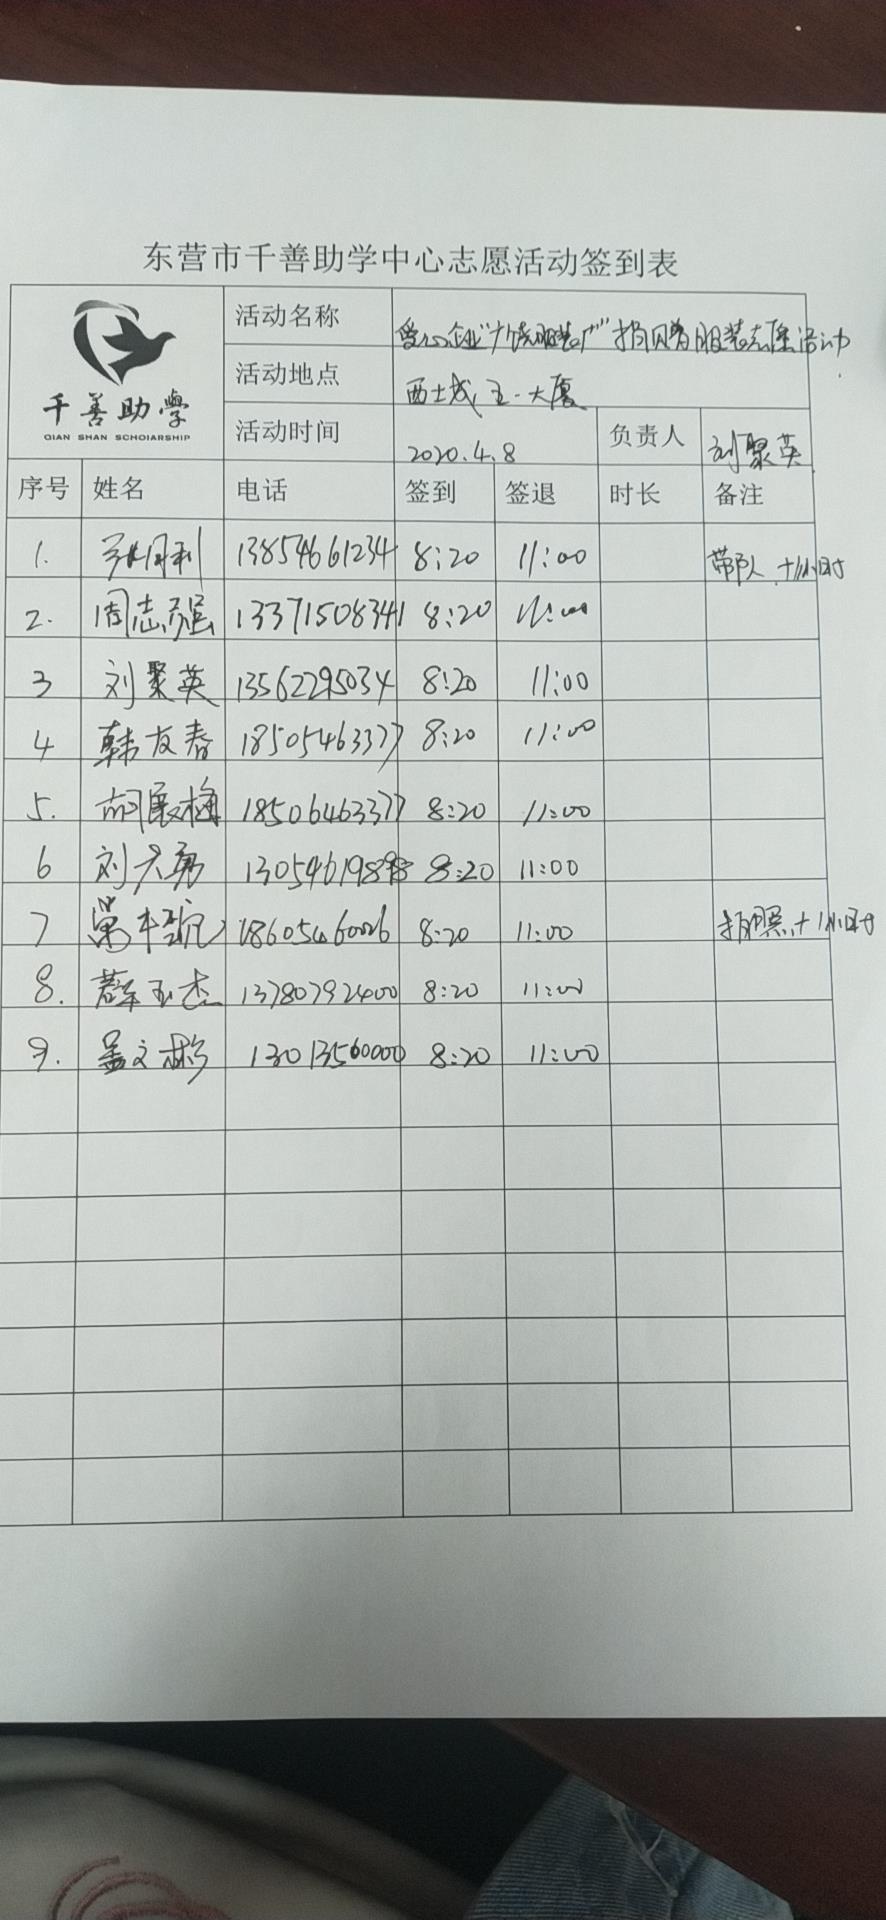 东营市千善助学中心志愿活动签到表
千善助学
QIAN SHAN SCHOIARSHIP
活动名称 爱心企业“广饶服装厂”捐赠服装志愿活动
活动地点 西士城 五一大厦
活动时间 2020.4.8 负责人 刘聚英
序号 姓名 电话 签到 签退 时长 备注
1. 张同利 13854661234 8:20 11:00 带队 +1小时
2. 周志强 13371508341 8:20 11:00
3 刘聚英 13562295034 8:20 11:00
4 韩友春 18505463377 8:20 11:00
5. 胡展梅 18506463377 8:20 11:00
6 刘大勇 8:20 11:00
7 18605460026 8:20 11:00 拍照 +1小时
8. 薛玉杰 13780792400 8:20 11:00
9. 盖文彬 13013560000 8:20 11:00